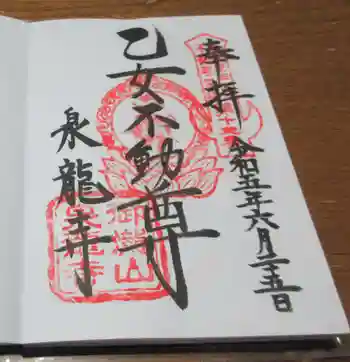 奉拝
令和五年六月二十五日
乙女不動尊
泉龍寺
御瀧山
泉龍寺